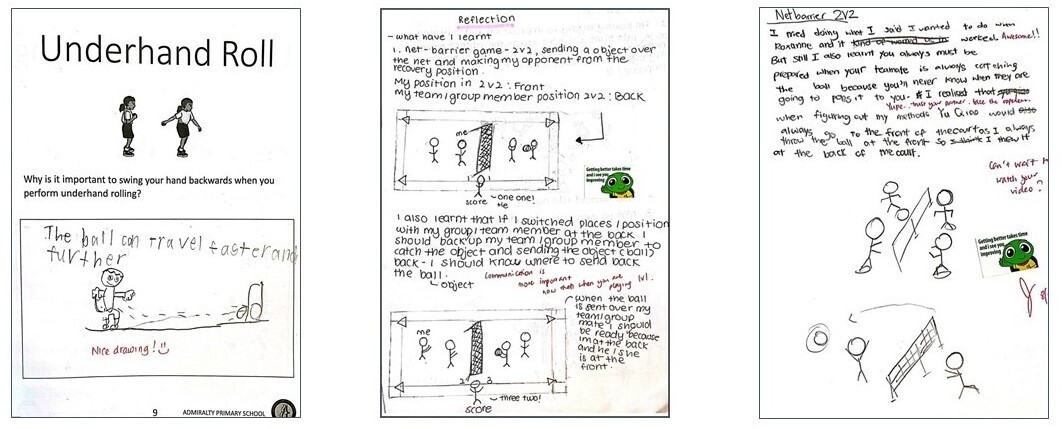 Underhand Roll
Why is it important to swing your hand backwards when you
perform underhand rolling?
The ball can travel faster and
further
Nice drawing!
9 ADMIRALTY PRIMARY SCHOOL
Reflection
- what have I learnt
1. net-barrier game - 2v2, sending a object over
the net and making my opponent from the
recovery position.
My position in 2v2: Front
My team/group member position 2v2: Back
me
1 1
score
one one!
Getting better takes time
and I see you
improving
I also learnt that if I switched places/position
with my group/team member at the back I
should back up my team/group member to
catch the object and sending the object (ball)
back - I should know where to send back
the ball.
object
Communication is
more important
now than when you are
playing 1v1.
when the ball
is sent over my
team/group
mate I should
be ready because
im at the back
and he/she
is at the
front.
me
2 3
score
three two!
Netbarrier 2v2
I tried doing what I said I wanted to do when
Roxanne and it worked. Awesome!!
But still I also learnt you always must be
prepared when your teamate is always catching
the ball because you'll never know when they are
going to pass it to you. I realised that
when figuring out my methods Yu Qiao would
always go to the front of the court as I always
throw the ball at the front so I threw it
at the back of the court.
Can't wait to
watch your
video?
Getting better takes time
and I see you
improving